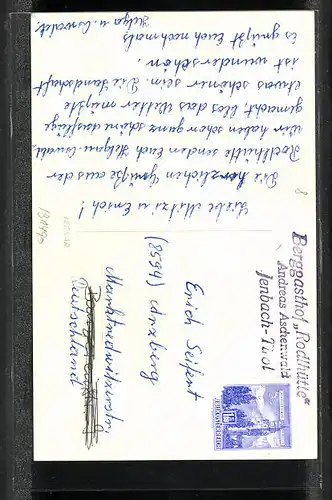 Liebe Mitzi u. Erich!
Die herzlichen Grüße aus der
Rodlhütte senden Euch Helga u. Oswald,
wir haben schon ganz schöne Ausflüge
gemacht, blos das Wetter müsste
etwas schöner sein. Die Landschaft
ist wunderschön.
Es grüßt Euch nochmals
Helga u. Oswald.
Berggasthof „Rodlhütte“
Andreas Aschenwald
Jenbach-Tirol
REPUBLIK
ÖSTERREICH
Erich Seifert
(8594) Arzberg
Marktredwitzerstr.
Deutschland
8